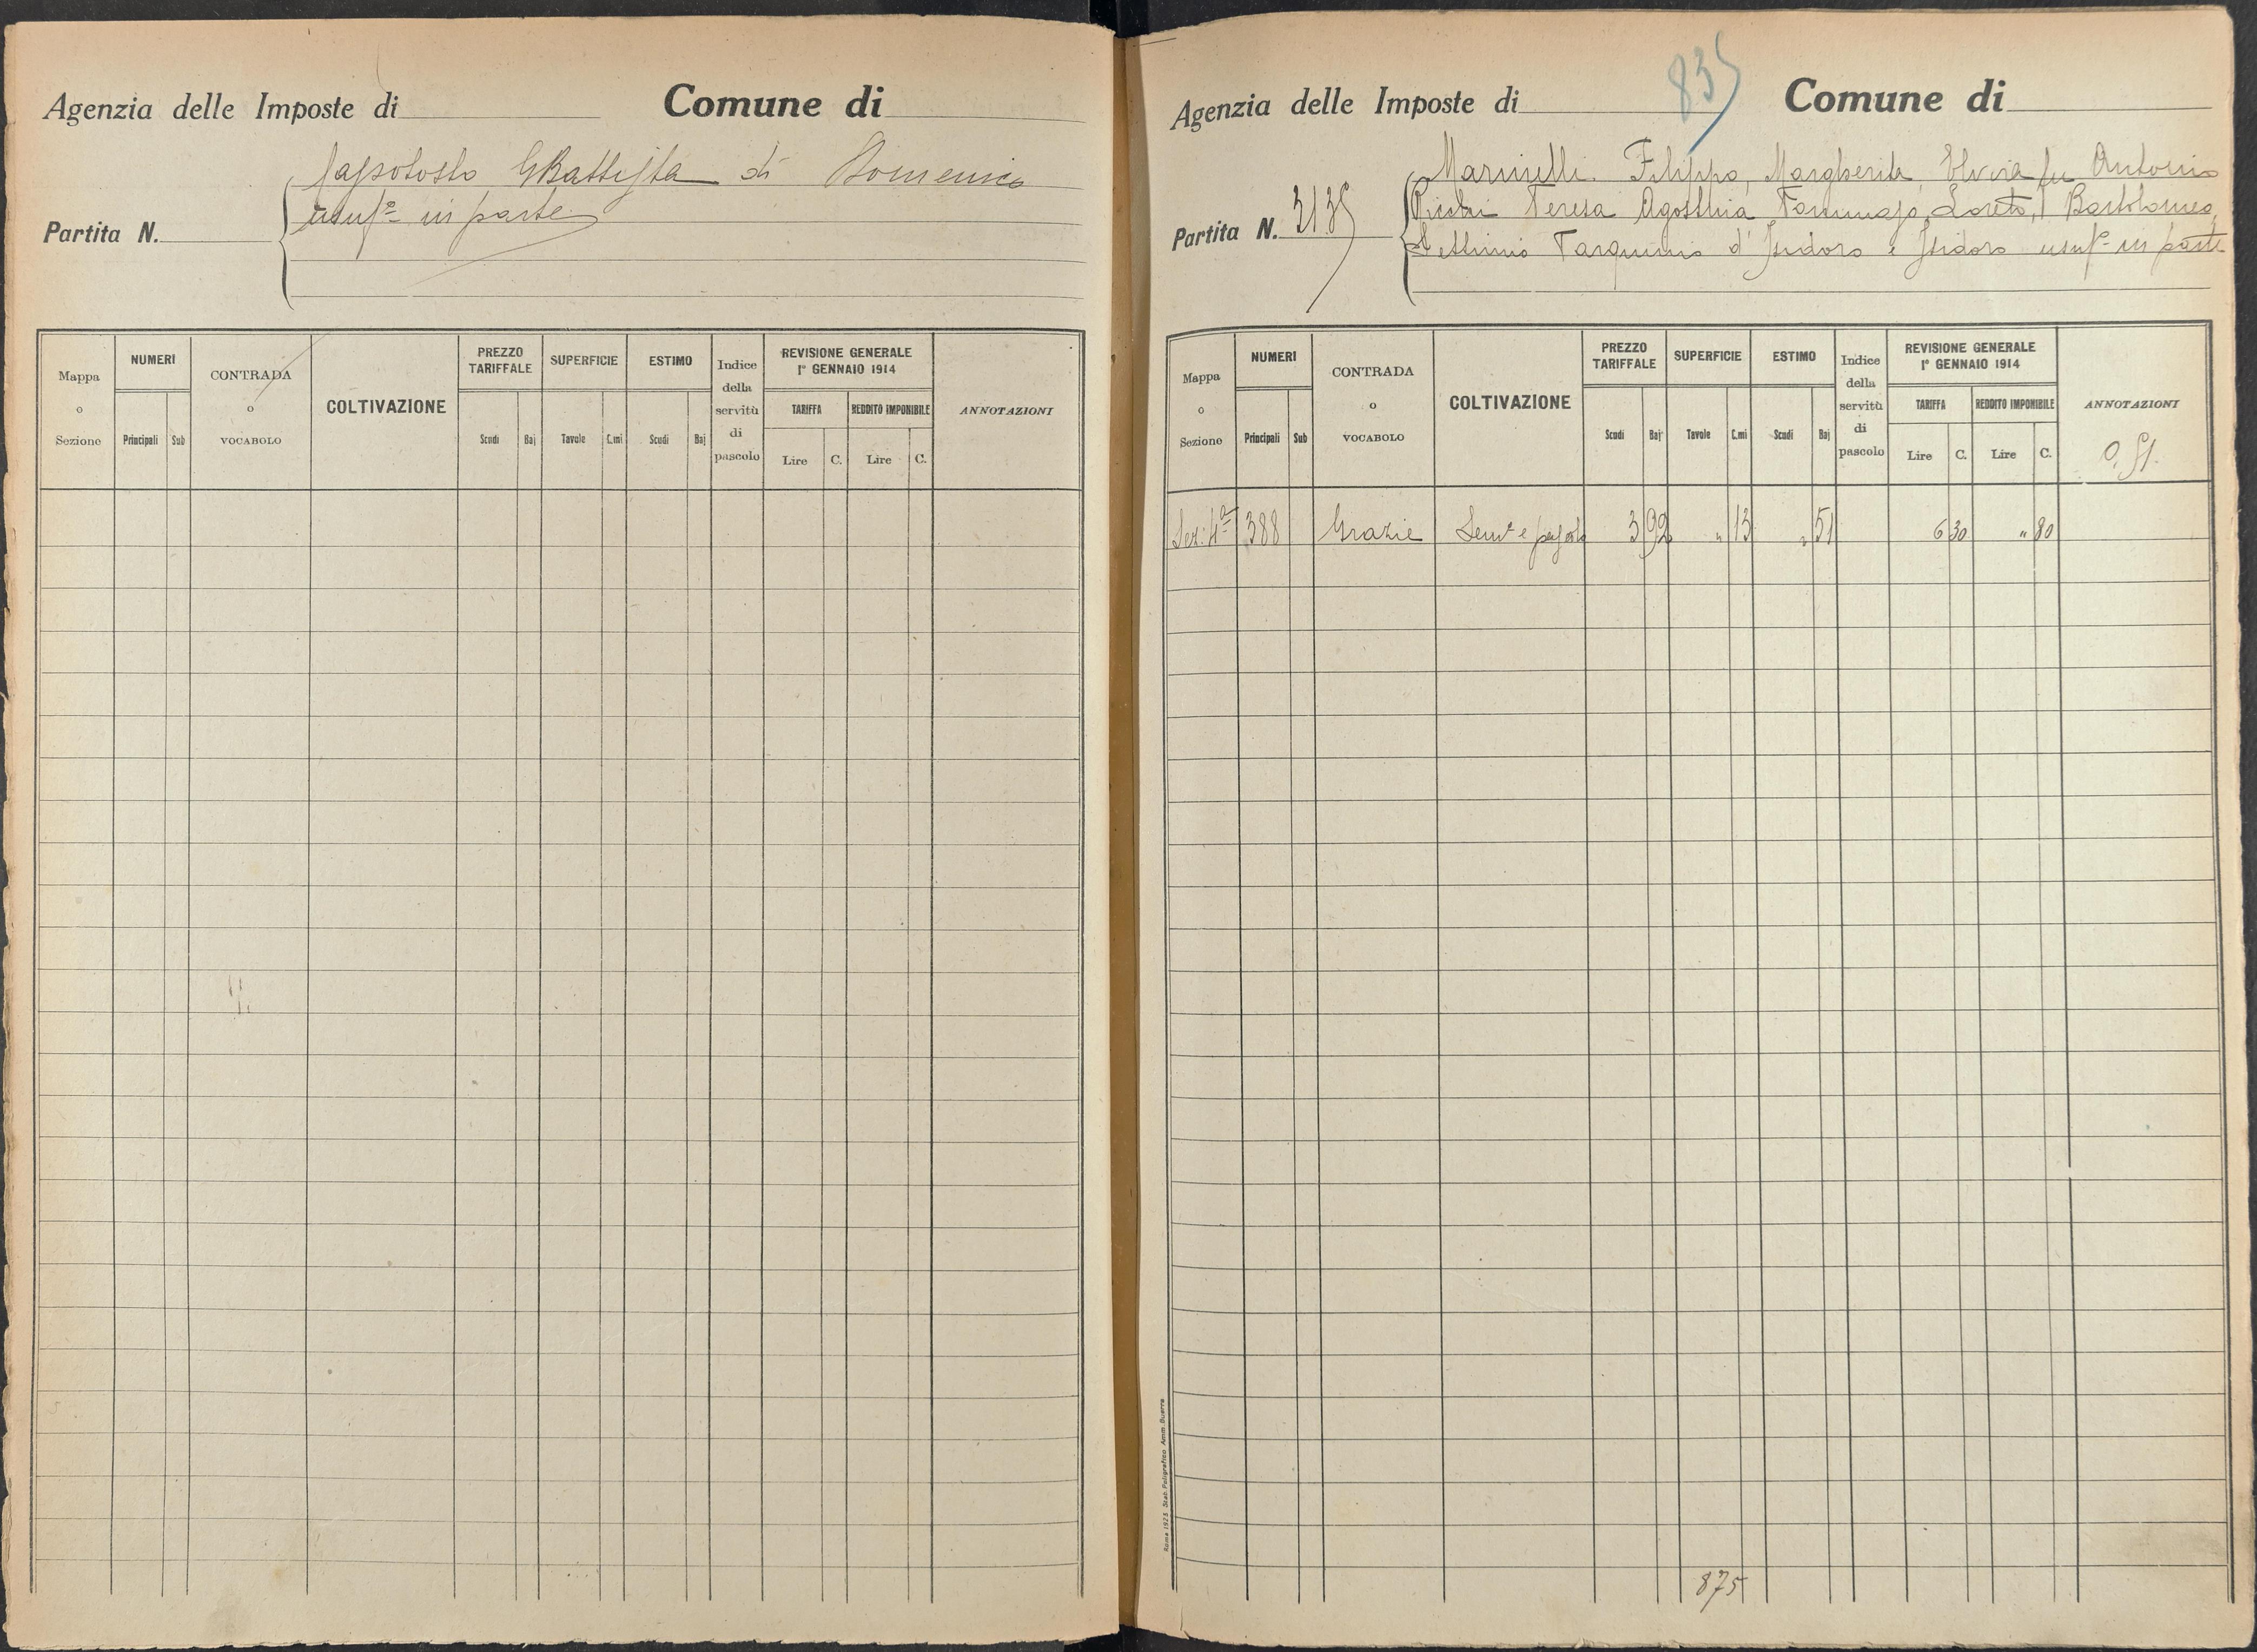 Agenzia delle Imposte di Comune di
GBattista di Domenico
usufº in parte
Partita N.
Mappa o Sezione
NUMERI
Principali Sub
CONTRADA o VOCABOLO
COLTIVAZIONE
PREZZO TARIFFALE
Scudi Baj
SUPERFICIE
Tavole C.mi
ESTIMO
Scudi Baj
Indice della servitù di pascolo
REVISIONE GENERALE 1º GENNAIO 1914
TARIFFA
Lire C.
REDDITO IMPONIBILE
Lire C.
ANNOTAZIONI
835
Agenzia delle Imposte di Comune di
Marinelli Filippo, Margherita, Elvira fu Antonio
Teresa Agostina Tommaso, Loreto, Bartolomeo,
Settimio Tarquinio d'Isidoro e Isidoro usufº in parte
Partita N. 2135
Mappa o Sezione
NUMERI
Principali Sub
CONTRADA o VOCABOLO
COLTIVAZIONE
PREZZO TARIFFALE
Scudi Baj
SUPERFICIE
Tavole C.mi
ESTIMO
Scudi Baj
Indice della servitù di pascolo
REVISIONE GENERALE 1º GENNAIO 1914
TARIFFA
Lire C.
REDDITO IMPONIBILE
Lire C.
ANNOTAZIONI
0,51
Sez: 4ª 388 Grazie Semº e 3 92 " 13 " 51 6 30 " 80
Roma 1925 Stab. Poligrafico Amm. Guerra
875